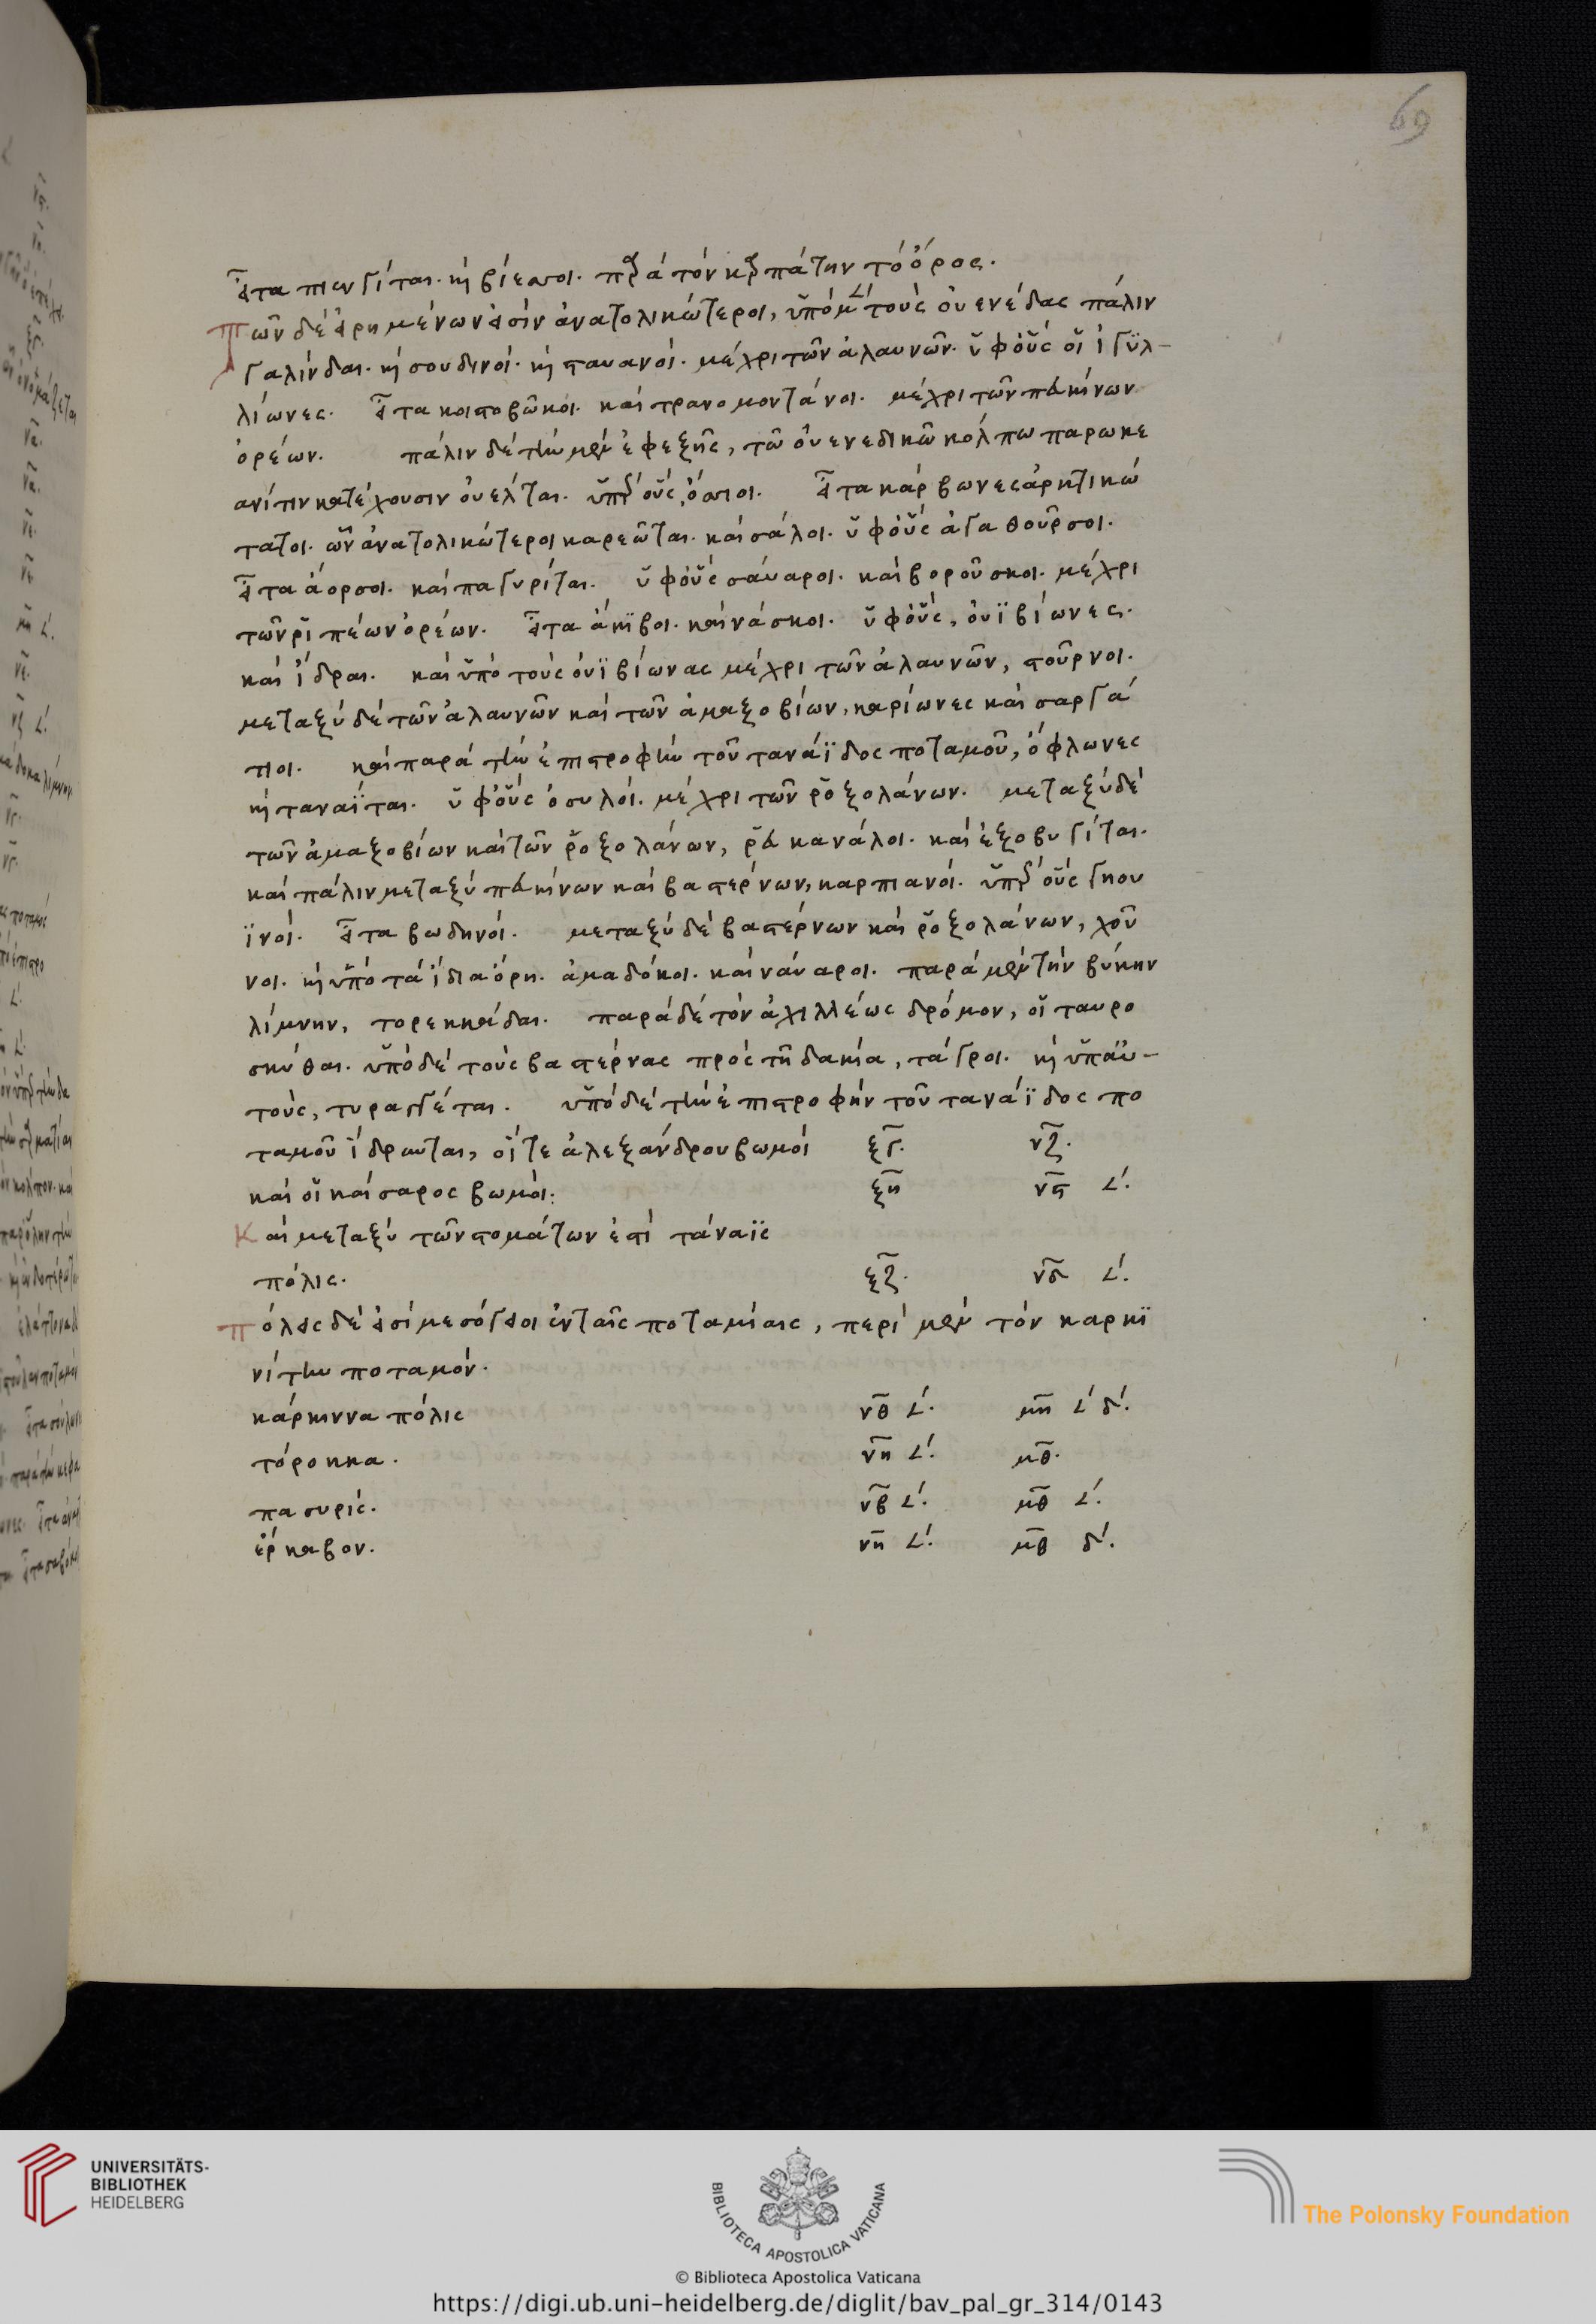 69
εἶτα πιενγίται. καὶ βίεσσοι. παρὰ τὸν καρπάτην τὸ ὄρος.
Τῶν δὲ εἰρημένων εἰσὶν ἀνατολικώτεροι, ὑπὸ μὲν τοὺς οὐενέδας πάλιν
γαλίνδαι. καὶ σουδινοί. καὶ σταυανοί. μέχρι τῶν ἀλαυνῶν. ὑφ οὓς οἱ ἰγϋλ-
λίωνες. εἶτα κοιστοβῶκοι. καὶ τρανομοντάνοι. μέχρι τῶν πευκίνων
ὀρέων. πάλιν δὲ τὴν μὲν ἐφεξῆς, τῶ οὐενεδικῶ κόλπω παρωκε
ανίτιν κατέχουσιν οὐέλται. ὑπὲρ οὓς, ὅσιοι. εἶτα κάρβωνες ἀρκτικώ
τατοι. ὧν ἀνατολικώτεροι καρεῶται. καὶ σάλοι. ὑφ οὓς ἀγαθοῦρσοι.
εἶτα ἄορσοι. καὶ παγυρίται. ὑφ οὓς σάυαροι. καὶ βοροῦσκοι. μέχρι
τῶν ῥιπέων ὀρέων. εἶτα ἄκϊβοι. καὶ νάσκοι. ὑφ οὓς, οὐϊβίωνες.
καὶ ἴδραι. καὶ ὑπὸ τοὺς οὐϊβίωνας μέχρι τῶν ἀλαυνῶν, στοῦρνοι.
μεταξὺ δὲ τῶν ἀλαυνῶν καὶ τῶν ἁμαξοβίων, καρίωνες καὶ σαργά
τιοι. καὶ παρὰ τὴν ἐπιστροφὴν τοῦ τανάϊδος ποταμοῦ, ὄφλωνες
καὶ ταναΐται. ὑφ οὓς ὀσυλοί. μέχρι τῶν ῥοξολάνων. μεταξὺ δὲ
τῶν ἁμαξοβίων καὶ τῶν ῥοξολάνων, ῥευκανάλοι. καὶ ἐξοβυγίται.
καὶ πάλιν μεταξὺ πευκίνων καὶ βαστέρνων, καρπιανοί. ὑπὲρ οὓς γηου
ϊνοί. εἶτα βωδηνοί. μεταξὺ δὲ βαστέρνων καὶ ῥοξολάνων, χοῦ
νοι. καὶ ὑπὸ τὰ ἴδια ὄρη. ἀμαδόκοι. καὶ νάυαροι. παρὰ μὲν τὴν βύκην
λίμνην, τορεκκάδαι. παρὰ δὲ τὸν ἀχιλλέως δρόμον, οἱ ταυρο
σκύθαι. ὑπὸ δὲ τοὺς βαστέρνας πρὸς τῆ δακία, τάγροι. καὶ ὑπ αὐ-
τοὺς, τυραγγέται. ὑπὸ δὲ τὴν ἐπιστροφὴν τοῦ τανάϊδος πο
ταμοῦ ἵδρυνται, οἵ τε ἀλεξάνδρου βωμοὶ ξγ. νζ.
καὶ οἱ καίσαρος βωμοί: ξη νϛ 𐅵.
Καὶ μεταξὺ τῶν στομάτων ἐστὶ τάναϊς
πόλις. ξζ. νδ 𐅵.
Πόλεις δέ εἰσι μεσόγειοι ἐν ταῖς ποταμίαις, περὶ μὲν τὸν καρκϊ
νίτην ποταμόν.
κάρκιννα πόλις νθ 𐅵. μη 𐅵 δ.
τόροκκα. νη 𐅵. μθ.
πασυρίς. νβ 𐅵. μθ 𐅵.
ἔρκαβον. νη 𐅵. μθ δ.
UNIVERSITÄTS-
BIBLIOTHEK
HEIDELBERG
BIBLIOTECA APOSTOLICA VATICANA
The Polonsky Foundation
© Biblioteca Apostolica Vaticana
https://digi.ub.uni-heidelberg.de/diglit/bav_pal_gr_314/0143